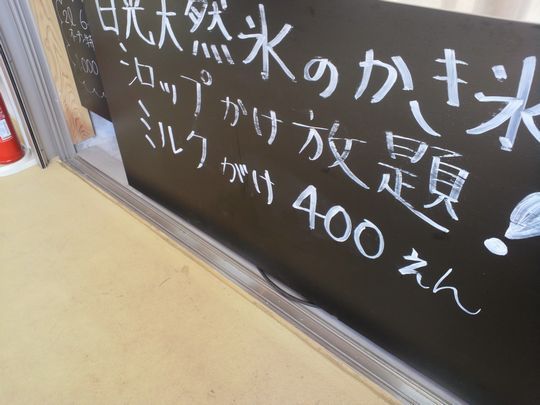 日光天然氷のかき氷
シロップかけ放題!
ミルクがけ400えん